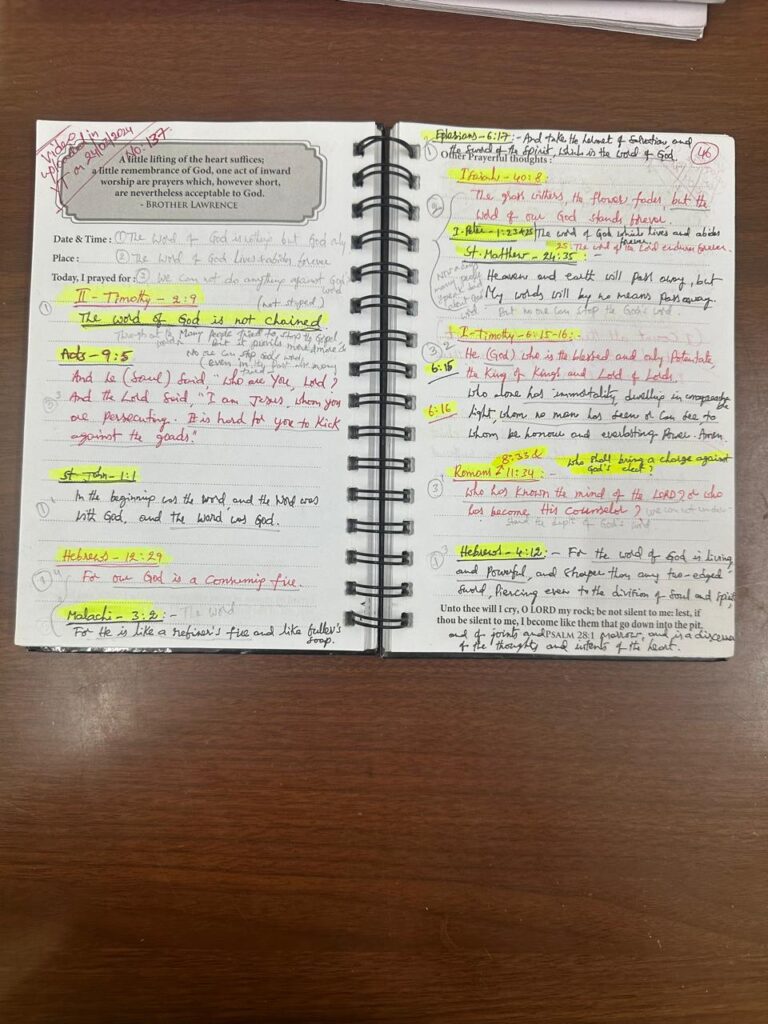 Video
uploaded in
YT on 24/02/2024
No: 137.
A little lifting of the heart suffices;
a little remembrance of God, one act of inward
worship are prayers which, however short,
are nevertheless acceptable to God.
- Brother Lawrence
Date & Time : ① The Word of God is nothing but God only
Place : ② The Word of God Lives & abides forever
Today, I prayed for : ③ We can not do anything against God's word
① II - Timothy - 2:9 (not styped)
The word of God is not chained
Many People tried to stop the Gospel
But it prevails more & more
No one can stop God's word
(even in the past
Acts - 9:5
And he (Saul) Said, "Who are You, Lord?
And the Lord Said, "I am Jesus, whom you
are persecuting. It is hard for you to Kick
against the goads."
St. John - 1:1
In the beginning was the Word, and the Word was
with God, and the Word was God.
Hebrews - 12:29
For our God is a Consuming fire.
Malachi - 3:2 :- The Word
For He is like a refiner's fire and like fuller's
soap.
Ephesians - 6:17 :- And take the helmet of Salvation, and
the Sword of the Spirit, which is the Word of God.
46
① Other Prayerful thoughts :
Isaiah - 40:8 :
② The grass withers, the flower fades, but the
Word of our God stands forever.
I. Peter - 1:23 & 25 The word of God which lives and abides
forever.
25: The word of the Lord endures forever.
St. Matthew - 24:35 :-
Heaven and earth will pass away, but
My words will by no means pass away.
But no one can stop the God's word
I - Timothy - 6:15-16 :-
③ He (God) who is the blessed and only Potentate,
6:15 the King of Kings and Lord of Lords.
who alone has immortality, dwelling in unapproachable
6:16 light, whom no man has seen or can see to
whom be honour and everlasting Power. Amen.
8:33 & who shall bring a charge against
God's elect?
Romans 11:34 :-
③ who has known the mind of the LORD? or who
has become His Counselor? We can not under-
stand the depth of God's word
① Hebrews - 4:12 :- For the word of God is living
and Powerful, and Sharper than any two-edged
Sword, Piercing even to the division of Soul and Spirit,
Unto thee will I cry, O LORD my rock; be not silent to me: lest, if
thou be silent to me, I become like them that go down into the pit.
and of joints and PSALM 28:1 marrow, and is a discerner
of the thoughts and intents of the heart.